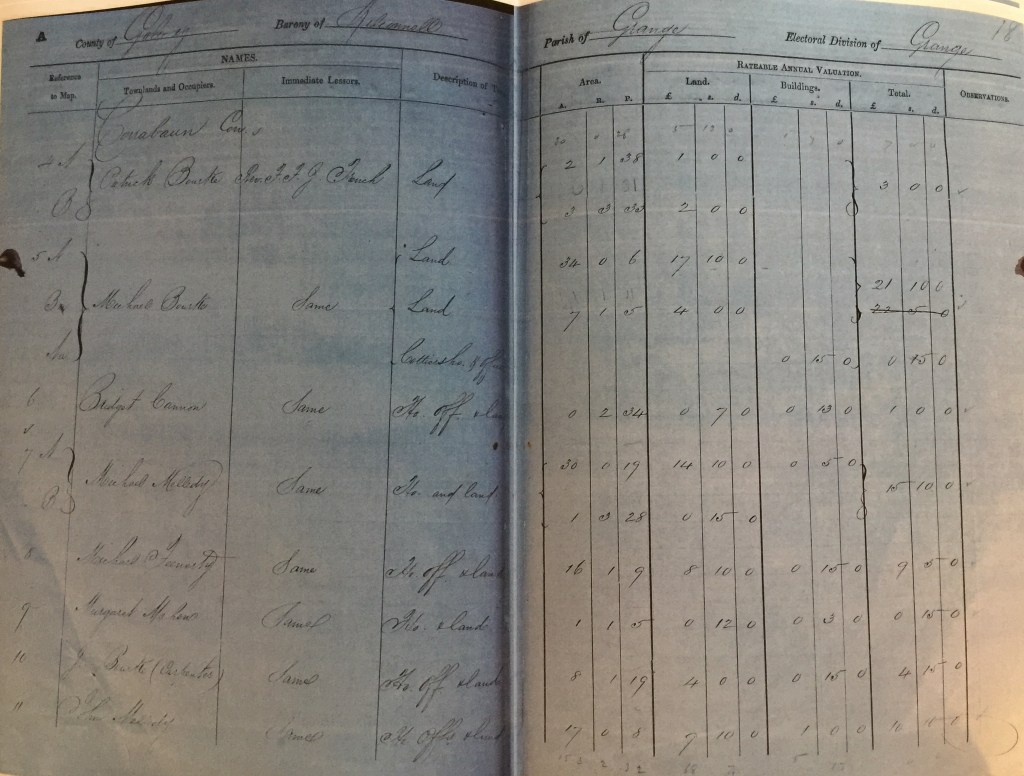 A County of Galway Barony of Kilconnell Parish of Grange Electoral Division of Grange 18
Reference to Map. NAMES. Description of Area. RATEABLE ANNUAL VALUATION. OBSERVATIONS.
Townlands and Occupiers. Immediate Lessors. Land. Buildings. Total.
A. R. P. £ s. d. £ s. d. £ s. d.
Corrabaun Con.
4 A 2 1 38 1 0 0
Patrick Bourke Land 3 0 0
B 3 3 33 2 0 0
5 A Land 34 0 6 17 10 0
21 10 0
B Michael Bourke Same Land 7 1 5 4 0 0 22 5 0
0 15 0 0 15 0
6 Bridget Cannon Same Ho. off & 0 2 34 0 7 0 0 13 0 1 0 0
7 A 30 0 19 14 10 0 0 5 0
Michael Melody Same Ho. and land 15 10 0
B 1 3 28 0 15 0
8 Michael Same Ho. off & land 16 1 9 8 10 0 0 15 0 9 5 0
9 Margaret Mahon Same Ho. & land 1 1 5 0 12 0 0 3 0 0 15 0
10 Burke (Carpenter) Same Ho. off & land 8 1 19 4 0 0 0 15 0 4 15 0
11 John Melody Same Ho. offs. & land 17 0 8 7 10 0 1 0 0